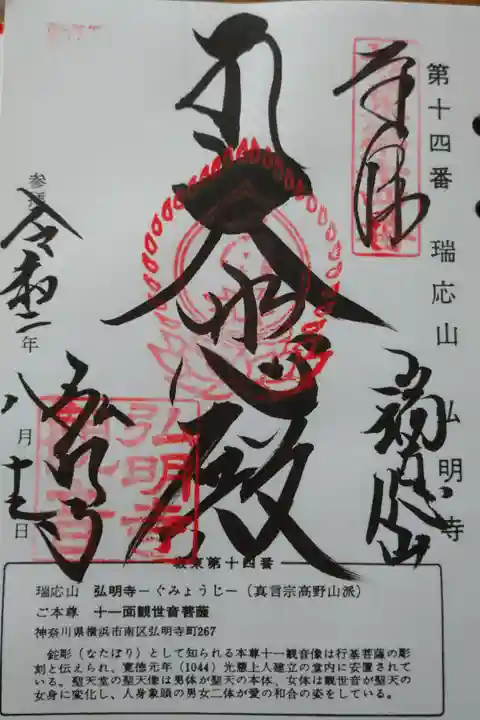 第十四番 瑞応山 弘明寺
奉拝
瑞應山
大悲殿
弘明寺
弘明寺
観世音
参拝
令和二年
八月十五日
坂東第十四番
瑞応山 弘明寺－ぐみょうじ－（真言宗高野山派）
ご本尊 十一面観世音菩薩
神奈川県横浜市南区弘明寺町267
鉈彫（なたぼり）として知られる本尊十一観音像は行基菩薩の彫
刻と伝えられ、寛徳元年（1044）光慧上人建立の堂内に安置されて
いる。聖天堂の聖天像は男体が聖天の本体、女体は観世音が聖天の
女身に変化し、人身象頭の男女二体が愛の和合の姿をしている。